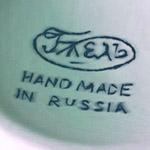 Гжелъ
HAND MADE
IN RUSSIA